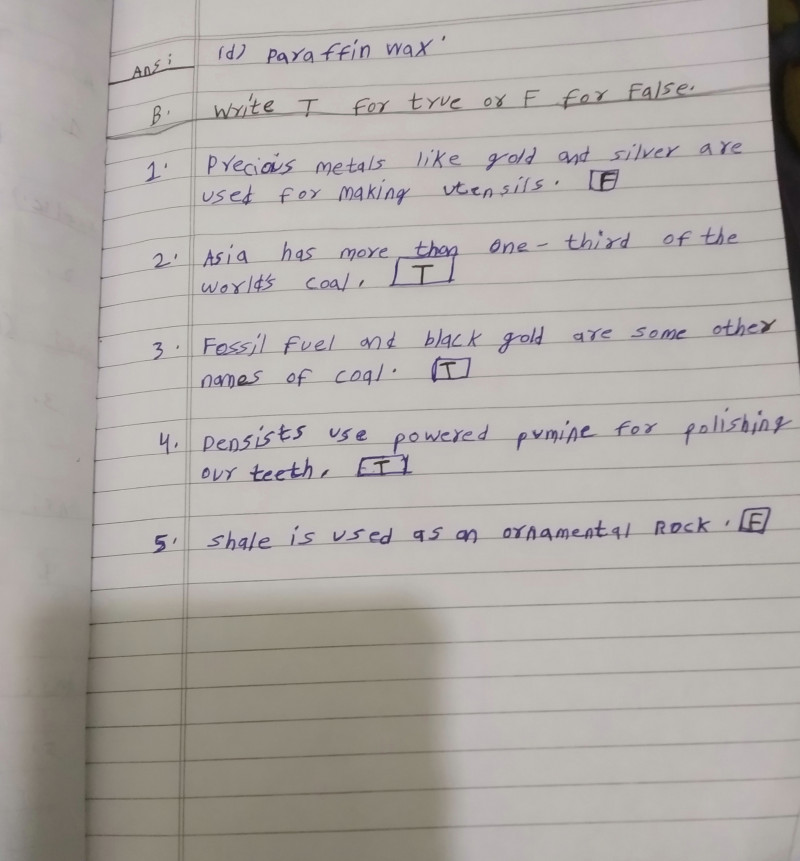 Ans: (d) Paraffin wax.
B. Write T for true or F for False.
1. Precious metals like gold and silver are
used for making utensils. F
2. Asia has more than one-third of the
world's coal. T
3. Fossil fuel and black gold are some other
names of coal. T
4. Densists use powered pumine for polishing
our teeth. T
5. Shale is used as an ornamental Rock. F